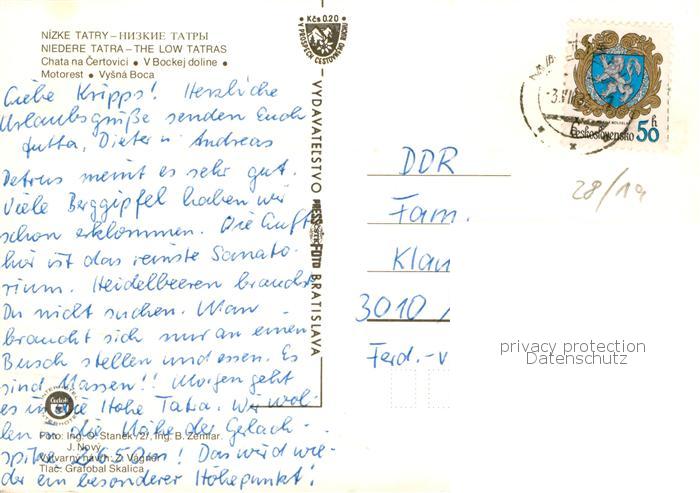 NÍZKE TATRY – НИЗКИЕ ТАТРЫ
NIEDERE TATRA – THE LOW TATRAS
Chata na Čertovici • V Bockej doline •
• Motorest • Vyšná Boca
Liebe Kripps! Herzliche
Urlaubsgrüße senden Euch
Jutta, Dieter u Andreas
Petrus meint es sehr gut.
Viele Berggipfel haben wir
schon erklommen. Die Luft
hier ist das reinste Sanato-
rium. Heidelbeeren brauchst
Du nicht suchen. Man
braucht sich nur an einen
Busch stellen und essen. Es
sind Massen!! Morgen geht
es in die Hohe Tatra. Wir wol-
len in die Nähe der Gerlach-
spitze 2650m! Das wird wie-
der ein besonderer Höhepunkt!
Čedok
Foto: Ing. O. Staněk /2/, Ing. B. Zemfar.
J. Nový
Výtvarný návrh: Z. Vágner
Tlač: Grafobal Skalica
Kčs 0.20
V PROSPECH CESTOVNÉHO RUCHU
VYDAVATEĽSTVO PRESSFOTO BRATISLAVA
Československo 50 h
28/19
DDR
Fam.
Klau
3010
Ferd.-
privacy protection
Datenschutz